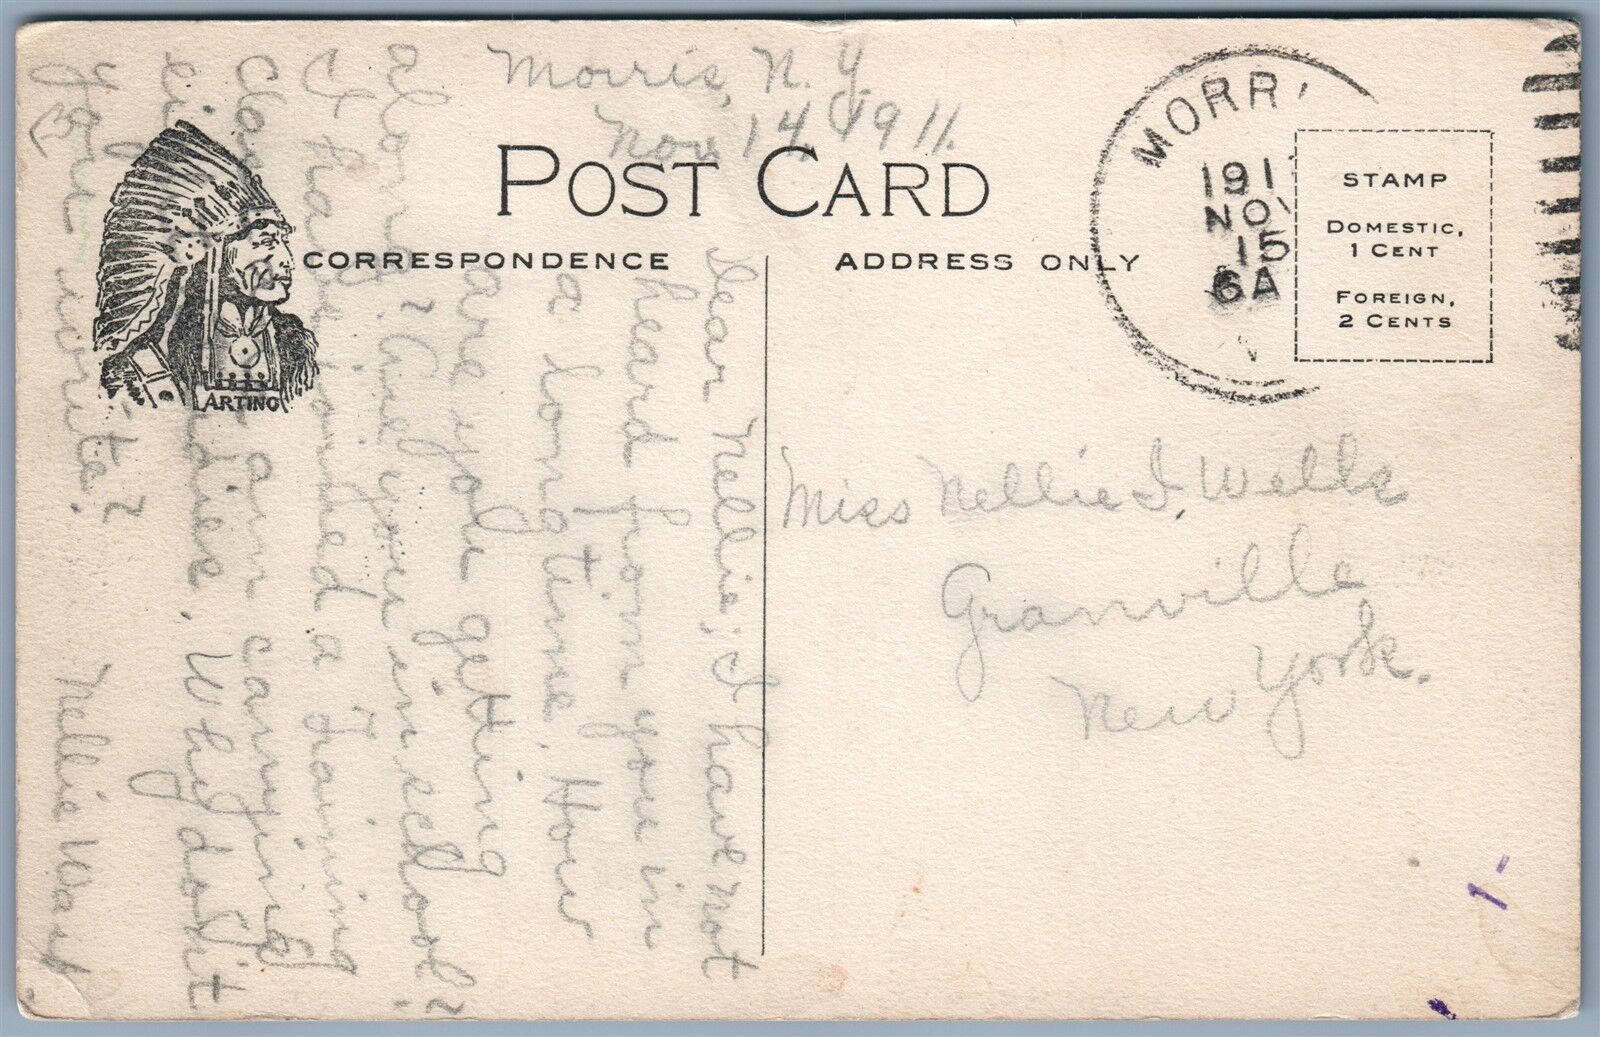 Morris, N. Y.
Nov 14, 1911.
POST CARD
CORRESPONDENCE
ADDRESS ONLY
ARTINO
MORRI
191
NOV
15
6A
STAMP
DOMESTIC,
1 CENT
FOREIGN,
2 CENTS
Dear Nellie; I have not
heard from you in
a long time. How
are you getting
along? Are you in school?
I have joined a Training
Class am carrying
studies. Why don't
you write?
Nellie
Miss Nellie I. Wells
Granville
New York.
1-